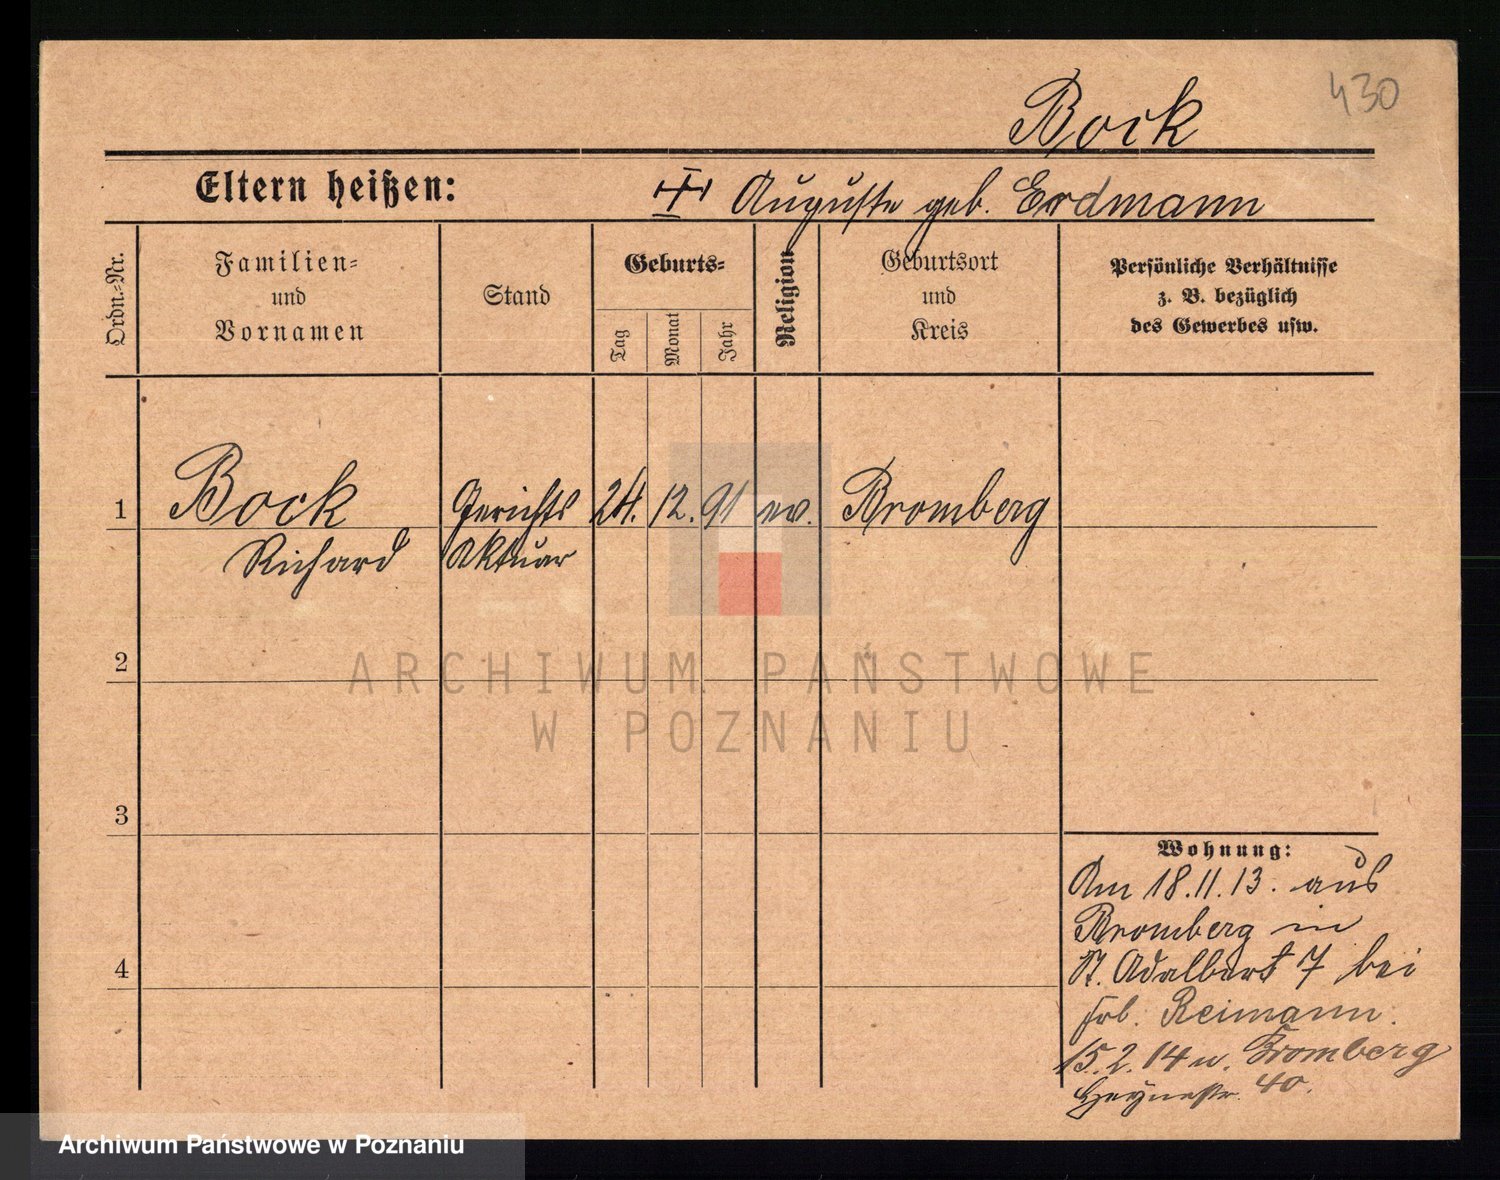 430
Bock
Eltern heißen: Auguste geb. Erdmann
Ordn.-Nr.
Familien-
und
Vornamen
Stand
Geburts-
Tag
Monat
Jahr
Religion
Geburtsort
und
Kreis
Persönliche Verhältnisse
z. B. bezüglich
des Gewerbes usw.
1 Bock Gerichts 24. 12. 91 ev. Bromberg
Richard Aktuar
ARCHIWUM PAŃSTWOWE
W POZNANIU
2
3
4
Wohnung:
Am 18.11.13. aus
Bromberg in
St. Adalbert 7 bei
Reimann.
15.2.14 n. Bromberg
Heynestr. 40.
Archiwum Państwowe w Poznaniu